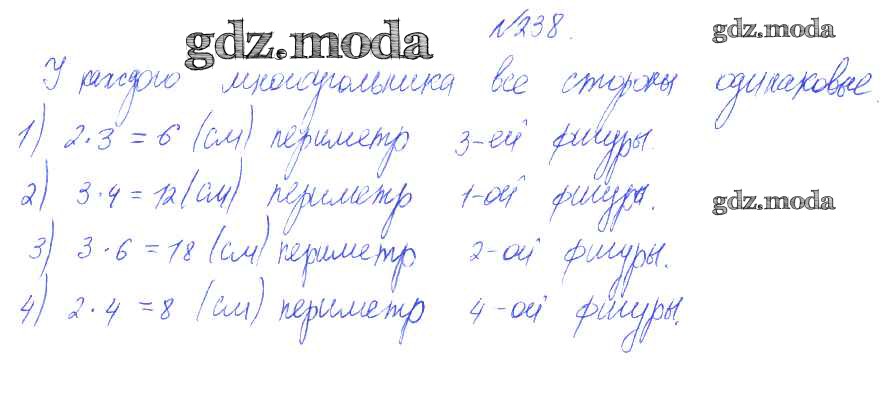 №238.
gdz.moda
gdz.moda
У каждого многоугольника все стороны одинаковые.
1) 2·3 = 6 (см) периметр 3-ей фигуры.
2) 3·4 = 12 (см) периметр 1-ой фигуры.
gdz.moda
3) 3·6 = 18 (см) периметр 2-ой фигуры.
4) 2·4 = 8 (см) периметр 4-ой фигуры.